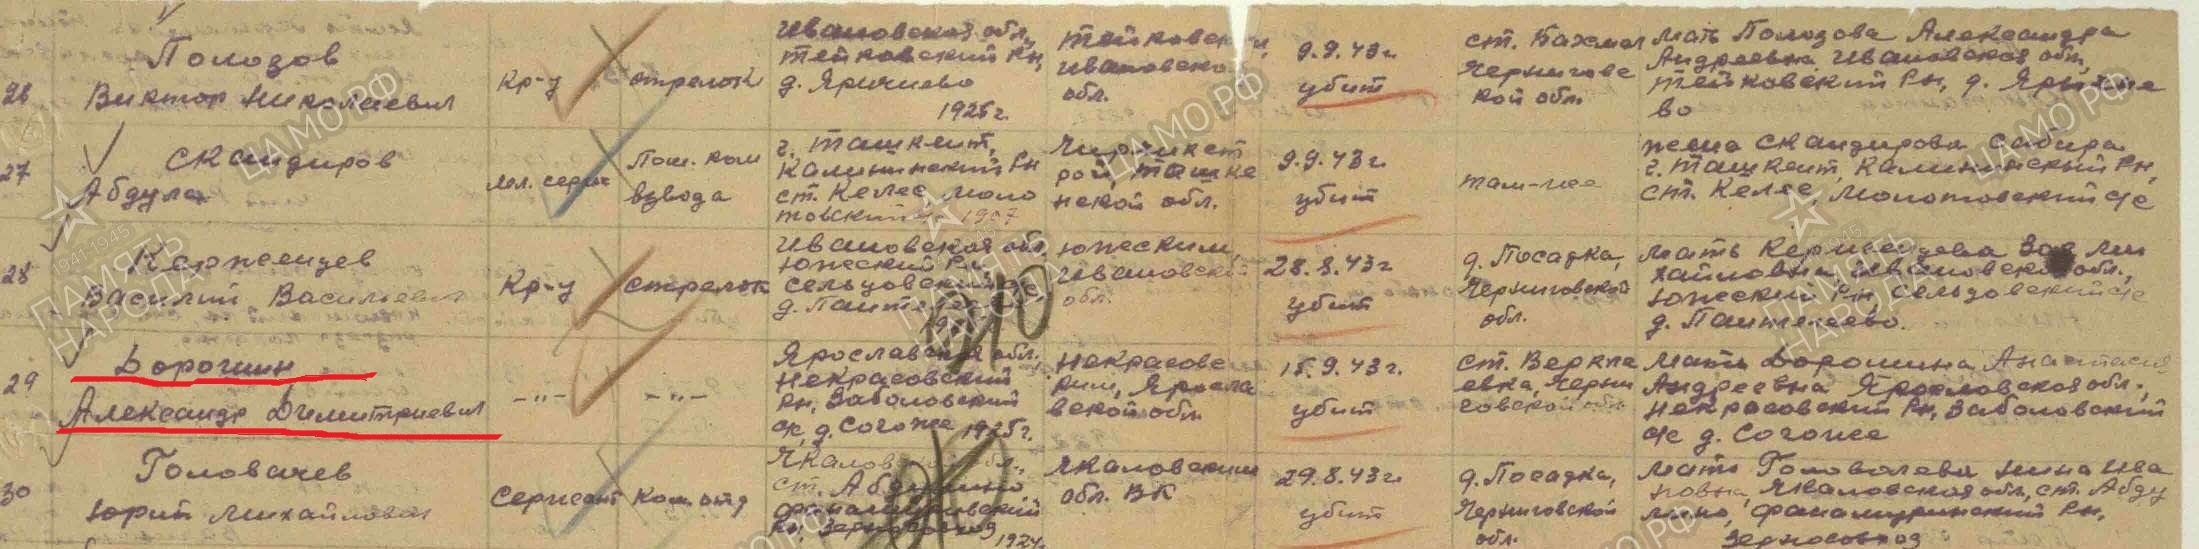 26
Полозов
Виктор Николаевич
Кр-ц
стрелок
Ивановская обл,
Тейковский Рн,
д.
1925г.
Тейковский
Ивановской
обл.
9.9.43г.
убит
ст. Бахмач
Чернигово
кой обл.
Мать Полозова Александра
Андреевна Ивановская обл,
Тейковский Рн, д.
во
27
Скандиров
Абдула
мл. серж
Пом. ком
взвода
г. Ташкент,
Калининский Рн
ст. Келес, Моло
товский 1907
рой, Ташке
нской обл.
9.9.43г.
убит
там-же
жена Скандирова Сабира
г. Ташкент, Калининский Рн,
ст. Келес, Молотовский с/с
28
Керженцев
Василий Васильевич
Кр-ц
стрелок
Ивановская обл.
Южский Рн
д.
Южским
Ивановской
обл.
28.8.43г
убит
д. Посадка,
Черниговской
обл.
Мать Керженцева
хайловна Ивановская обл.,
Южский Рн,
д. Пантелеево.
29
Дорошин
Александр Димитриевич
-"-
-"-
Ярославская обл.
Некрасовский
Рн, Заболовский
с/с, д. Согоже 1925г.
Некрасовс
ким, Яросла
вской обл.
15.9.43г.
убит
ст. Веркие
евка, Черни
говской обл
Мать Дорошина Анастасия
Андреевна Ярославская обл.,
Некрасовский Рн, Заболовский
с/с д. Согоже
30
Головачев
Юрий Михайлович
Сержант
Ком. отд
Чкаловская обл.,
ст. Абдулино,
Рн, Зерносовхоз
1924г
Чкаловским
обл. ВК
29.8.43г.
убит
д. Посадка,
Черниговской
обл.
Мать Головачева Нина Ива
новна, Чкаловская обл, ст. Абду
лино, Рн,
Зерносовхоз
ЦАМО РФ
1941-1945
ПАМЯТЬ
НАРОДА